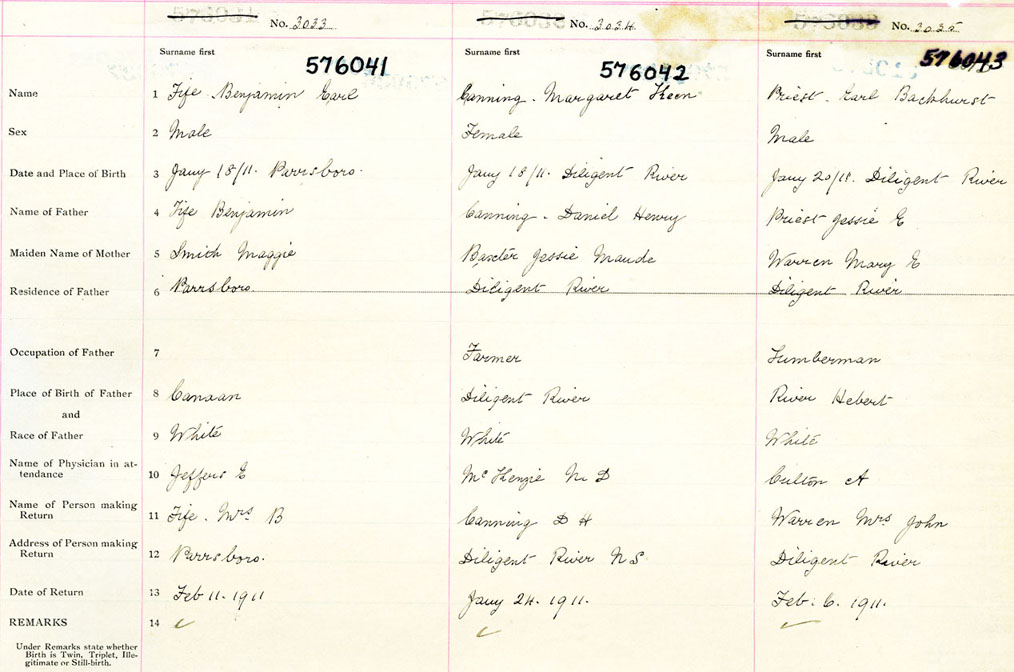 No. 3033 No. 3034 No. 3035
Surname first Surname first Surname first
576041 576042 576043
Name 1 Fife Benjamin Earl Canning. Margaret Keen Priest. Earl Backhurst
Sex 2 Male Female Male
Date and Place of Birth 3 Jany 18/11. Parrsboro. Jany 18/11. Diligent River Jany 20/11. Diligent River
Name of Father 4 Fife Benjamin Canning. Daniel Henry Priest Jessie E
Maiden Name of Mother 5 Smith Maggie Baxter Jessie Maude Warren Mary E
Residence of Father 6 Parrsboro. Diligent River Diligent River
Occupation of Father 7 Farmer Lumberman
Place of Birth of Father 8 Canaan Diligent River River Hebert
and
Race of Father 9 White White White
Name of Physician in at-
tendance 10 Jeffers E McKenzie M D A
Name of Person making
Return 11 Fife. Mrs. B Canning D H Warren Mrs John
Address of Person making
Return 12 Parrsboro. Diligent River N.S. Diligent River
Date of Return 13 Feb 11. 1911 Jany 24. 1911. Feb. 6. 1911.
REMARKS 14
Under Remarks state whether
Birth is Twin, Triplet, Ille-
gitimate or Still-birth.